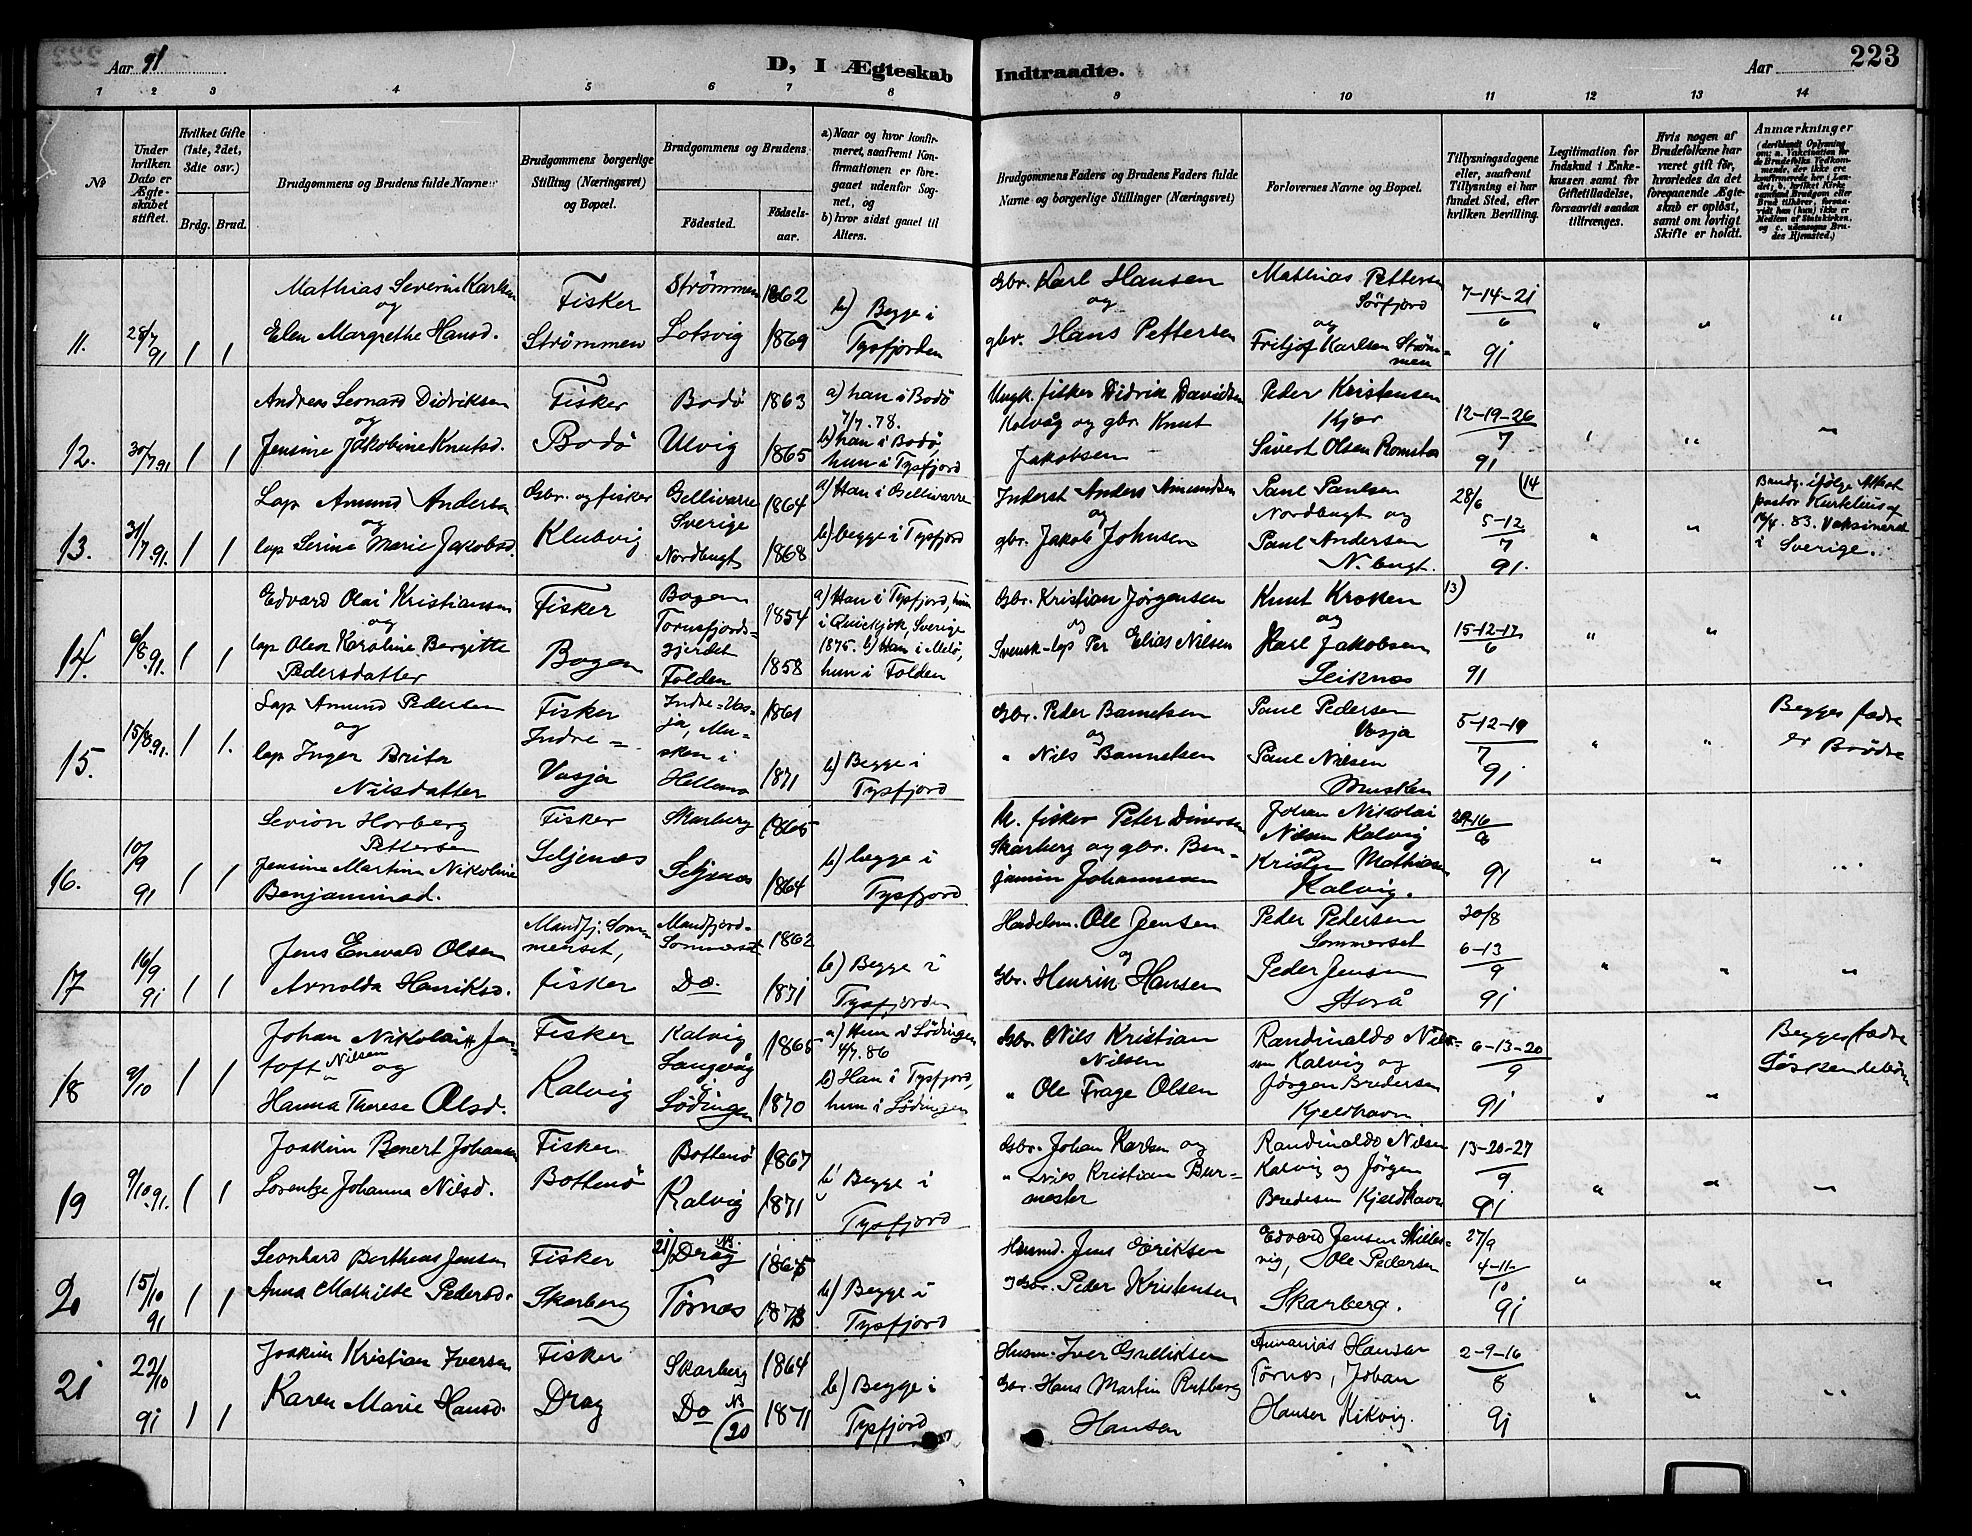 Aar 91
D, I Ægteskab
Indtraadte.
Aar
223
1 2 3 4 5 6 7 8 9 10 11 12 13 14
No
Under hvilken Dato er Ægteskabet stiftet.
Hvilket Gifte (1ste, 2det, 3die osv.)
Brdg. Brud.
Brudgommens og Brudens fulde Navne
Brudgommens borgerlige Stilling (Næringsvei) og Bopæl.
Brudgommens og Brudens
Fødested.
Fødselsaar.
a) Naar og hvor konfirmeret, saafremt Konfirmationen er foregaaet udenfor Sognet, og
b) hvor sidst gaaet til Alters.
Brudgommens Faders og Brudens Faders fulde Navne og borgerlige Stillinger (Næringsvei)
Forlovernes Navne og Bopæl.
Tillysningsdagene eller, saafremt Tillysning ei har fundet Sted, efter hvilken Bevilling.
Legitimation for Indskud i Enkekassen samt for Giftetilladelse, forsaavidt saadan tiltrænges.
Hvis nogen af Brudefolkene har været gift før, hvorledes da det foregaaende Ægteskab er opløst, samt om lovligt Skifte er holdt.
Anmærkninger
(deriblandt Oplysning om: a. Vaccination for de Brudefolks Vedkommende, der ikke ere konfirmerede her i Landet; b. hvilket Kirkesamfund Brudgom eller Brud tilhører, forsaavidt han (hun) ikke er Medlem af Statskirken, og c. udensogns Brudes Hjemsted.)
11. 28/7 91 1 1
Mathias Severin Karlsen
og
Elen Margrethe Hansd.
Fisker
Strömmen
Strömmen 1862
Lotsvig 1869
b) Begge i
Tysfjorden
Gbr. Karl Hansen
og
gbr. Hans Pettersen
Mathias Pettersen
Sörfjord
og
Fritjof Karlsen Strömmen
7-14-21
6
91
" " "
12. 30/7 91 1 1
Andreas Leonard Didriksen
og
Jensine Jakobine Knutsd.
Fisker
Bodö
Bodö 1863
Ulvig 1865
a) han i Bodö
7/7. 78.
b) han i Bodö,
hun i Tysfjord
Ungk. fisker Didrik Davidsen
Kalvåg og gbr. Knut
Jakobsen
Peder Kristensen
Kjær
Sivert Olsen Romstad
12-19-26
7
91
" " "
13. 31/7. 91. 1 1
Lap Amund Andersen
og
lap Serine Marie Jakobsd.
Gbr. og fisker
Klubvig
Gellivarre 1864
Sverige
Nordbugt 1868
a) Han i Gellivarre
b) begge i Tysfjord
Inderst Anders Amundsen
og
gbr. Jakob Johnsen
Paul Paulsen
Nordbugt og
Paul Andersen
N. bugt.
28/6 (14
5-12
7
91.
" "
Brudg. ifölge Attest
pastor Kurkelius af
16/4. 83. Vaksineret
i Sverige.
14. 6/8. 91. 1 1
Edvard Olai Kristiansen
og
lap Olea Karoline Bergitte
Pedersdatter
Fisker
Bogen
Bogen 1854
gjerdet
Folden 1858
a) Han i Tysfjord, hun
i Quickjok, Sverige
1875. b) Han i Melö,
hun i Folden
Gbr. Kristian Jörgensen
og
Svensk-lap Per Elias Nilsen
Knut Kroken
og
Karl Jakobsen
Leiknes
13)
15-12-17
6
91
" "
15. 15/8. 91. 1 1.
Lap Amund Pedersen
og
lap Inger Brita
Nilsdatter
Fisker
Indre-
Vasja
Indre-Vasja, 1861
Musken i
Hellemo 1871
b) Begge i
Tysfjord
Gbr. Peder Bannetsen
og
" Nils Bannetsen
Paul Pedersen
Vasja
Paul Nilsen
Musken
5-12-19
7
91
" "
Begges fædre
er Brödre
16. 10/9 91 1 1
Serion Horberg
Pettersen
Jensine Martine Nikoline
Benjaminsd.
Fisker
Seljenæs
Skarberg 1865
Seljenæs 1864
b) begge i
Tysfjord
U. fisker Peter Dinersen
Skarberg og gbr. Benjamin
Johannesen
Johan Nikolai
Nilsen Kalvig
og
Kristen Mathiesen
Kalvig.
91
" " "
17 16/9 91 1 1
Jens Enevald Olsen
Arnolda Henriksd.
Mandfj. Sommerset,
fisker
Mandfjord-
Sommerset 1862
Do. 1871
b) Begge i
Tysfjorden
Handelsm. Ole Jensen
og
Gbr. Henrik Hansen
Peder Pedersen
Sommerset
Peder Jensen
Storå
30/8
6-13
9
91
" " "
18 9/10 1 1
Johan Nikolai Jentoft
Nilsen og
Hanna Therese Olsd.
Fisker
Kalvig
Kalvig 1865
Langvåg
i
Lödingen 1870
a) Hun i Lödingen
4/7. 86
b) Han i Tysfjord,
hun i Lödingen
Gbr. Nils Kristian
Nilsen
" Ole Frage Olsen
Randinaldo Nilssen
Kalvig og
Jörgen Bredesen
Kjeldhavn
6-13-20
9
91
" "
Begges fædre
Söskendebörn
19 9/10. 91. 1 1
Joakim Benert Johansen
Lorentze Johanna Nilsd.
Fisker
Bottenö
Bottenö 1867
Kalvig 1871
b) Begge i
Tysfjord
Gbr. Johan Karlsen og
" Nils Kristian Burmester
Randinaldo Nilsen
Kalvig og Jörgen
Bredesen Kjeldhavn
13-20-27
9
91
" " "
20 15/10 91 1 1
Leonhard Bertheas Jensen
Anna Mathilde Pedersd.
Fisker
Skarberg
21) Drag NB. 1865
Törnæs 1873
b) Begge i
Tysfjord
Husmd. Jens Eriksen
Gbr. Peder Kristensen
Edvard Jensen Skillevig,
Ole Pedersen
Skarberg.
27/9
4-11
10
91
" " "
21 22/10 91 1 1
Joakim Kristian Iversen
Karen Marie Hansd.
Fisker
Drag
Skarberg 1864
Do NB (20 1871
b) Begge i
Tysfjord
Husm. Iver Gulliksen
Gbr. Hans Martin Rutberg
Hansen
Annanias Hansen
Törnæs, Johan
Hansen Kikvig.
2-9-16
8
91
" " "